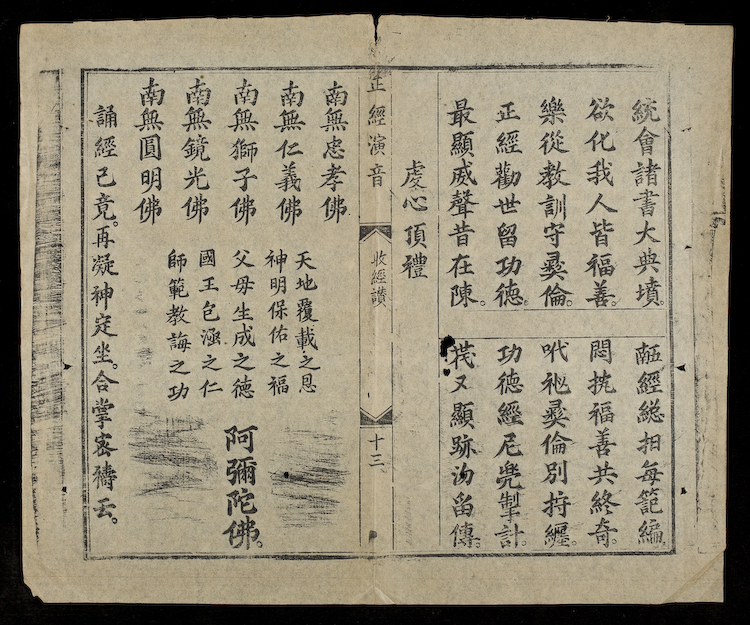 統會諸書大典墳。
經総每範編。
欲化我人皆福善。
悶福善共終奇。
樂從教訓守彛倫。
吪彛倫別纒。
正經勸世留功德。
功德經尼計。
最顯威聲昔在陳。
又顯跡留傳。
虔心頂禮
正經演音
收經讃
十三
南無忠孝佛
南無仁義佛
南無獅子佛
南無鏡光佛
南無圓明佛
天地覆載之恩
神明保佑之福
父母生成之德
國王包涵之仁
師範教誨之功
阿彌陀佛。
誦經已竟。再凝神定坐。合掌密禱云。